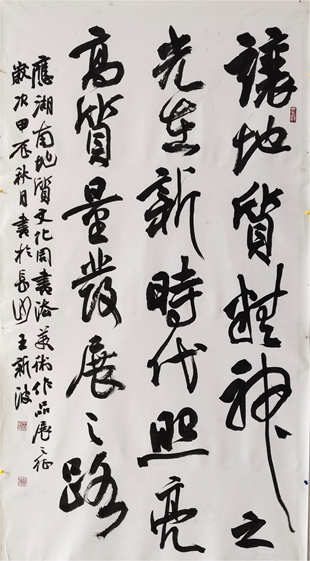 讓地質精神之
光在新時代照亮
高質量發展之路
應湖南地質文化周書法美術作品展之征
歲次甲辰秋月書於長沙王新波